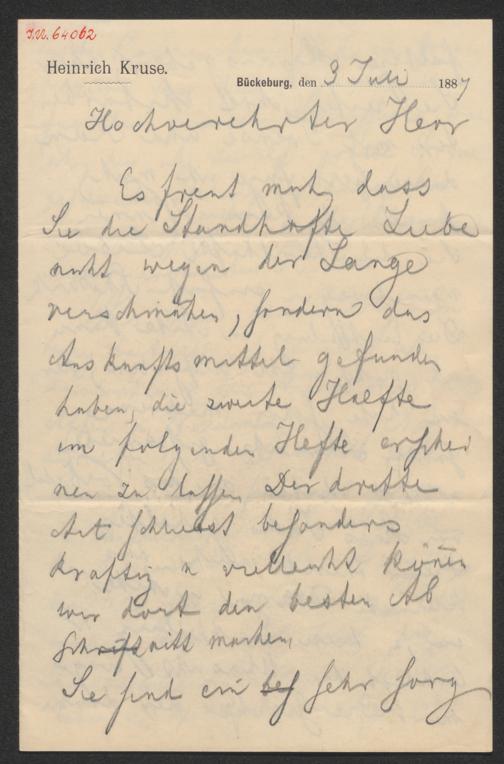 J.N. 64062
Heinrich Kruse.
Bückeburg, den 3 Juli 1887
Hochverehrter Herr
Es freut mich, dass
Sie die Standhafte Liebe
nicht wegen der Lange
verschmähen, sondern das
Auskunftsmittel gefunden
haben, die zweite Haelfte
im folgenden Hefte erschei
nen zu lassen. Der dritte
Act schliesst besonders
kraftig u vielleicht können
wir dort den besten Ab
schnitt machen.
Sie sind ein sehr sorg